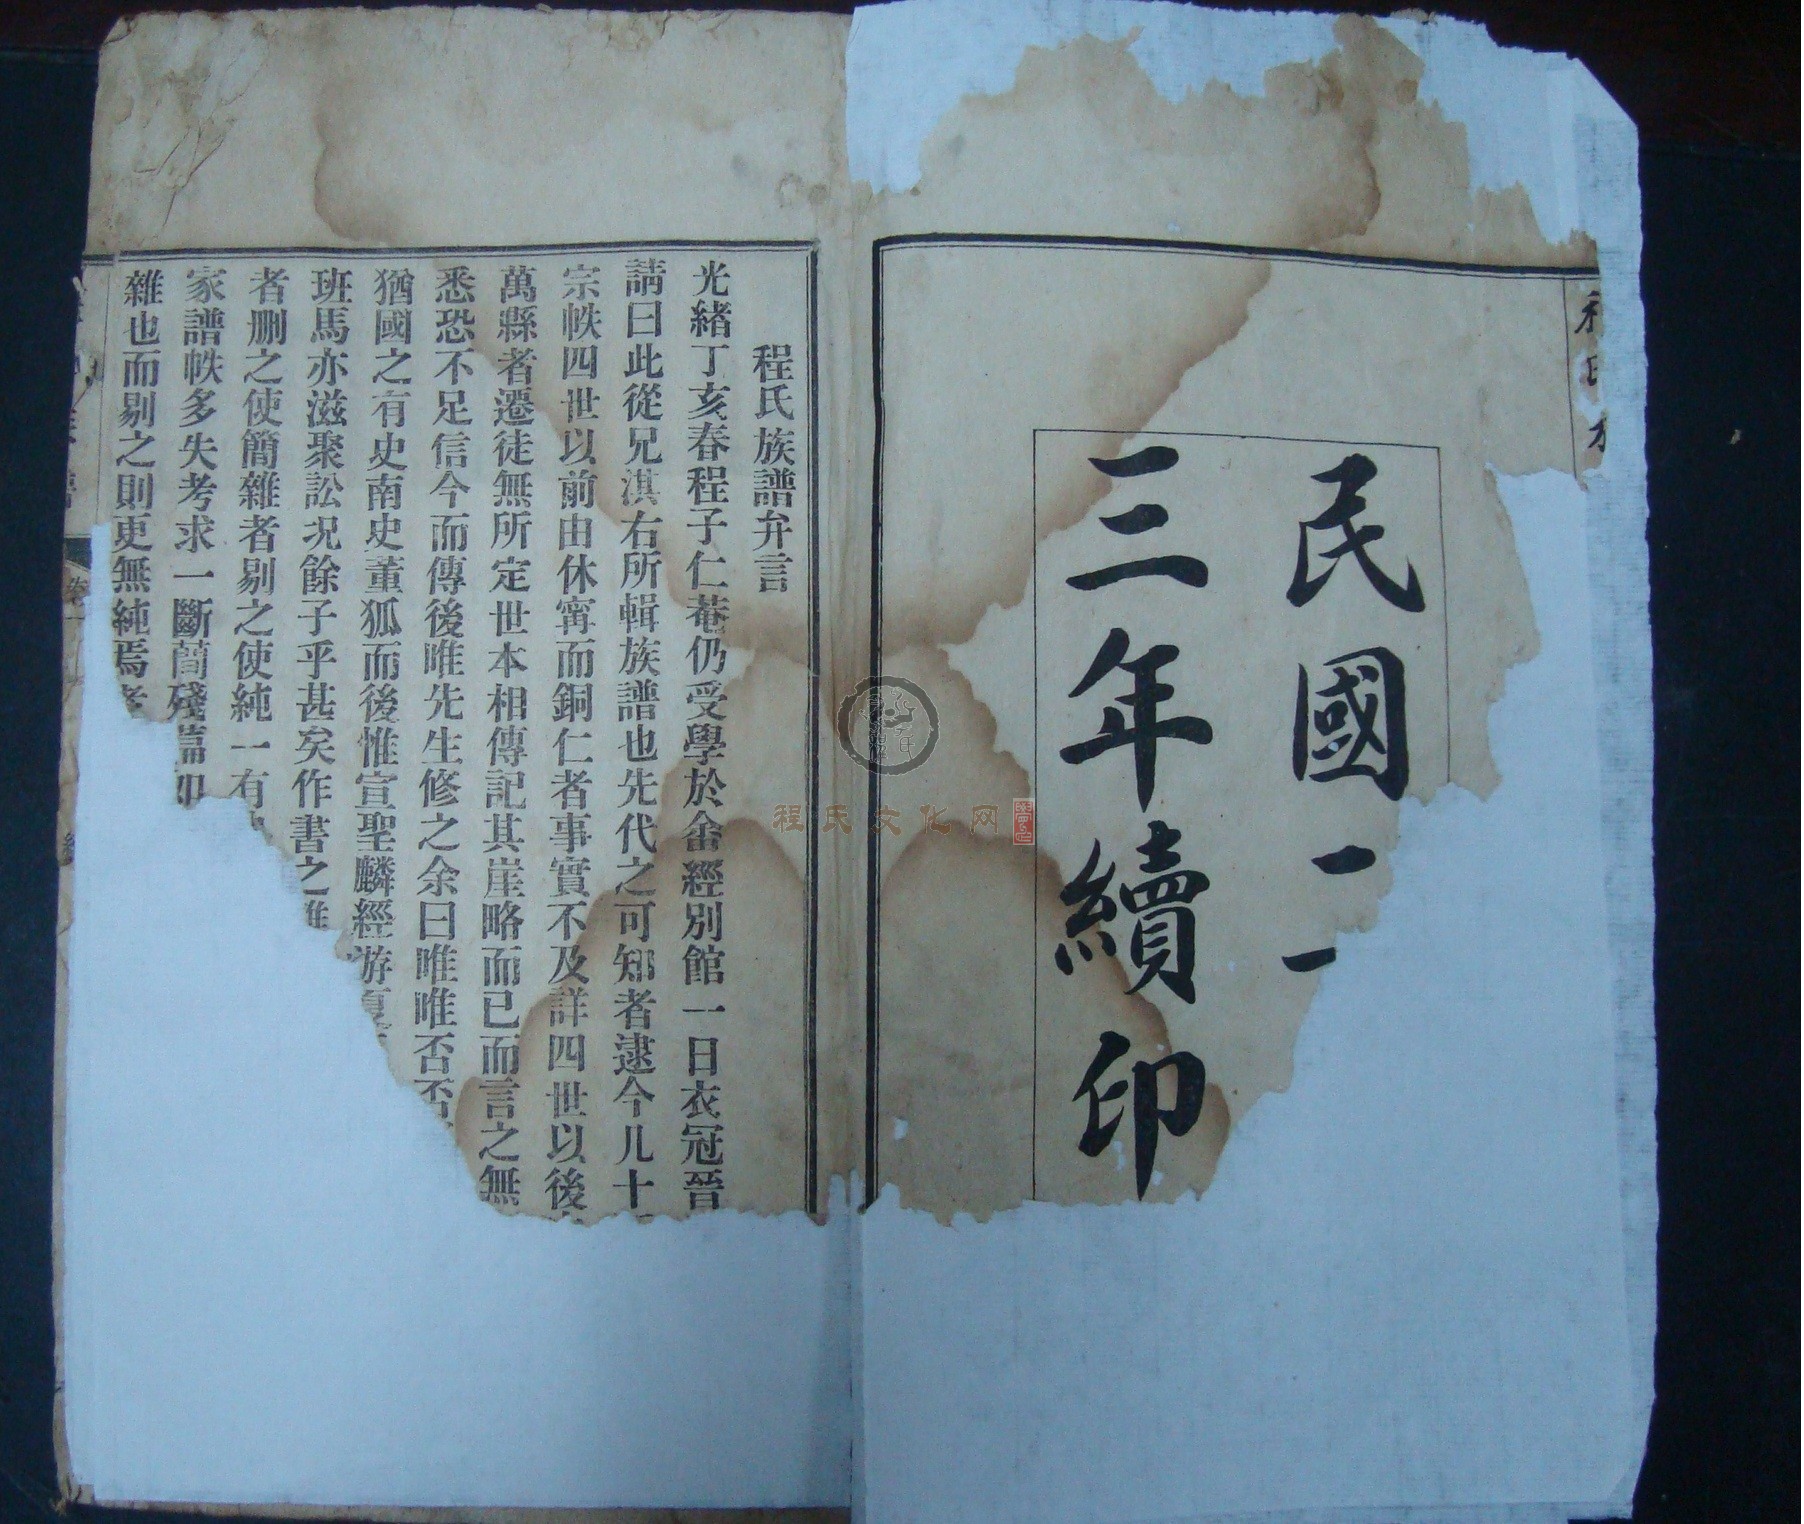 民國二
三年續印
程氏族譜弁言
光緒丁亥春程子仁菴仍受學於畬經別館一日衣冠晉
請曰此從兄淇右所輯族譜也先代之可知者逮今几十
宗帙四世以前由休甯而銅仁者事實不及詳四世以後
萬縣者遷徒無所定世本相傳記其崖略而已而言之無
悉恐不足信今而傳後唯先生修之余曰唯唯否否
猶國之有史南史董狐而後惟宣聖麟經游夏
班馬亦滋聚訟况餘子乎甚矣作書之難
者删之使簡雜者剔之使純一有
家譜帙多失考求一斷簡殘篇如
雜也而剔之則更無純焉者
程氏文化网